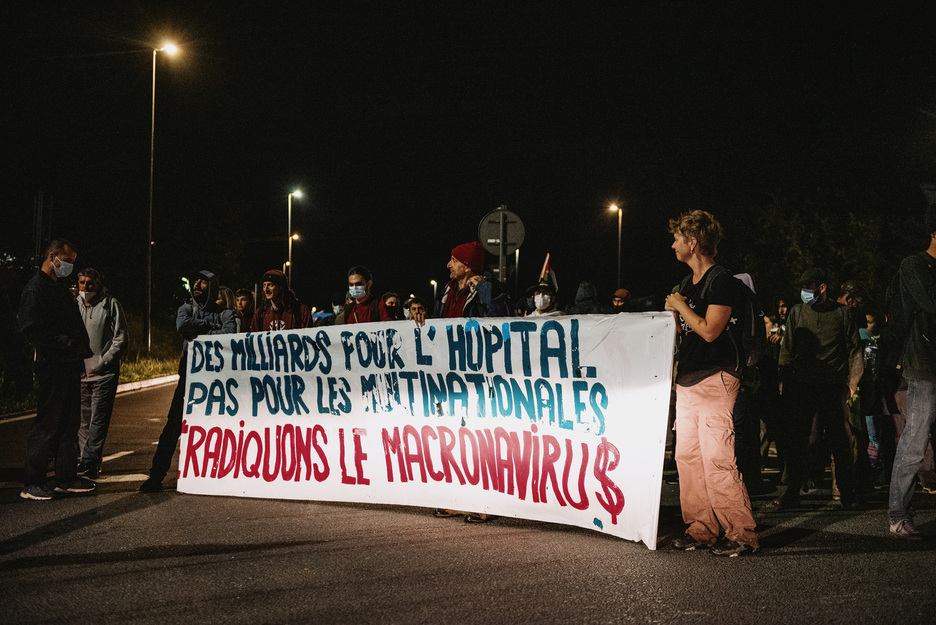 DES MILLIARDS POUR L'HÔPITAL
PAS POUR LES MULTINATIONALES
ERADIQUONS LE MACRONAVIRU$